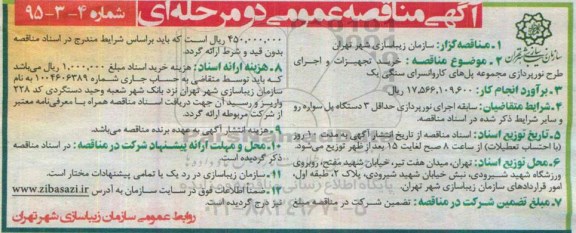 آگهی مناقصه عمومی دو مرحله‌ای
شماره ۴-۳-۹۵
سازمان زیباسازی شهر تهران
۱- مناقصه‌گزار: سازمان زیباسازی شهر تهران
۲- موضوع مناقصه: خرید تجهیزات و اجرای
طرح نورپردازی مجموعه پل‌های کاروانسرای سنگی یک
۳- برآورد انجام کار: ۱۷،۵۶۶،۱۰۹،۶۰۰ ریال
۴- شرایط متقاضیان: سابقه اجرای نورپردازی حداقل ۳ دستگاه پل سواره رو
و سایر شرایط ذکر شده در اسناد مناقصه.
۵- تاریخ توزیع اسناد: اسناد مناقصه از تاریخ انتشار آگهی به مدت ۱۰ روز
(با احتساب تعطیلات) از ساعت ۸ صبح لغایت ۱۵ بعد از ظهر توزیع می‌شود.
۶- محل توزیع اسناد: تهران، میدان هفت تیر، خیابان شهید مفتح، روبروی
ورزشگاه شهید شیرودی، نبش خیابان شهید شیرودی، پلاک ۲، طبقه اول،
امور قراردادهای سازمان زیباسازی شهر تهران.
۷- مبلغ تضمین شرکت در مناقصه: تضمین شرکت در مناقصه مبلغ
۴۵۰،۰۰۰،۰۰۰ ریال است که باید براساس شرایط مندرج در اسناد مناقصه
بدون قید و شرط ارائه گردد.
۸- هزینه ارائه اسناد: هزینه خرید اسناد مبلغ ۱،۰۰۰،۰۰۰ ریال می‌باشد
که باید توسط متقاضی به حساب جاری شماره ۱۰۰۴۶۰۶۳۸۹ به نام
سازمان زیباسازی شهر تهران نزد بانک شهر شعبه وحید دستگردی کد ۲۲۸
واریز و رسید آن جهت دریافت اسناد مناقصه همراه با معرفی‌نامه معتبر
از شرکت مربوطه ارائه گردد.
۹- هزینه انتشار آگهی به عهده برنده مناقصه می‌باشد.
۱۰- محل و مهلت ارائه پیشنهاد شرکت در مناقصه: در اسناد مناقصه
ذکر گردیده است.
۱۱- سازمان زیباسازی در رد یک یا تمامی پیشنهادات مختار است.
۱۲- ضمناً اطلاعات فوق در سایت سازمان به آدرس www.zibasazi.ir
نیز درج گردیده است.
روابط عمومی سازمان زیباسازی شهر تهران